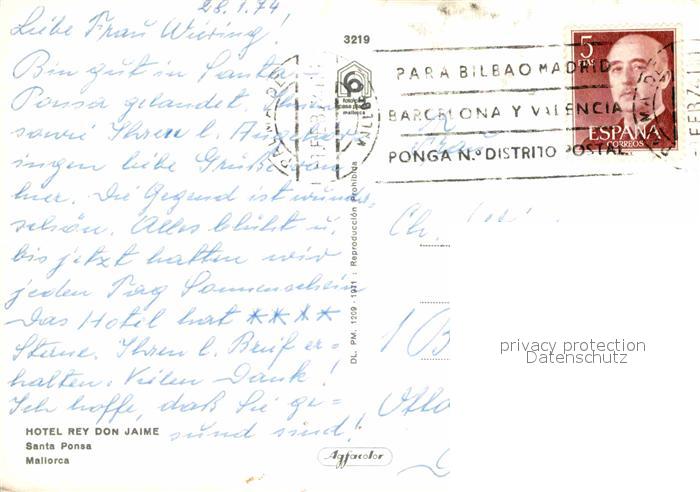 28.1.74
Liebe Frau Wiesing!
Bin gut in Santa
Ponsa gelandet. Ihnen
sowie Ihren l. Angehör
ingen liebe Grüße von
hier. Die Gegend ist wunder-
schön. Alles blüht u.
bis jetzt hatten wir
jeden Tag Sonnenschein
Das Hotel hat ****
Sterne. Ihren l. Brief er-
halten. Vielen Dank!
Ich hoffe, daß Sie ge-
sund sind!
HOTEL REY DON JAIME
Santa Ponsa
Mallorca
3219
DL. PM. 1209-1971 : Reproducción Prohibida
Agfacolor
PARA BILBAO MADRID
BARCELONA Y VALENCIA
PONGA N.º DISTRITO POSTAL
5
PTAS
ESPAÑA
CORREOS
Ch.
1 B
Otto
privacy protection
Datenschutz